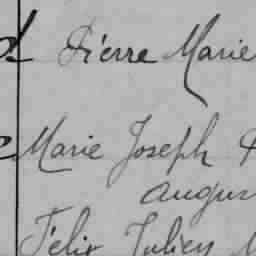 Pierre Marie
Marie Joseph
Augus
Félix Julien